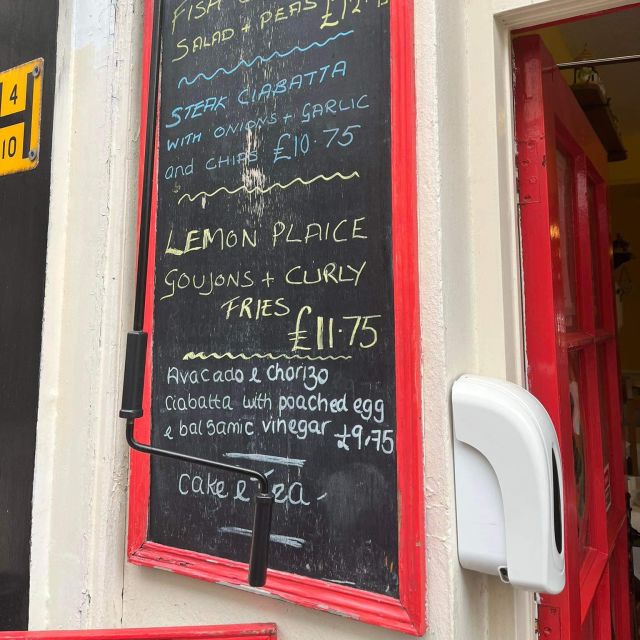 4
10
FISH
SALAD + PEAS £12
STEAK CIABATTA
WITH ONIONS + GARLIC
and CHIPS £10.75
LEMON PLAICE
GOUJONS + CURLY
FRIES
£11.75
Avacado e chorizo
ciabatta with poached egg
e balsamic vinegar £9.75
cake e Tea